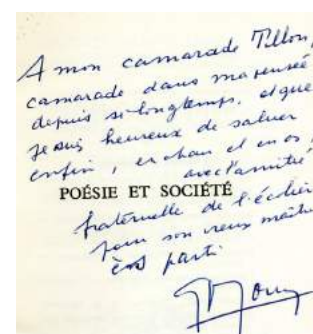 A mon camarade Tillon,
camarade dans ma pensée
depuis si longtemps, et que
je suis heureux de saluer
enfin, en chair et en os,
avec l'amitié
POÉSIE ET SOCIÉTÉ
fraternelle de l'écolier
pour son vieux maître
ès parti